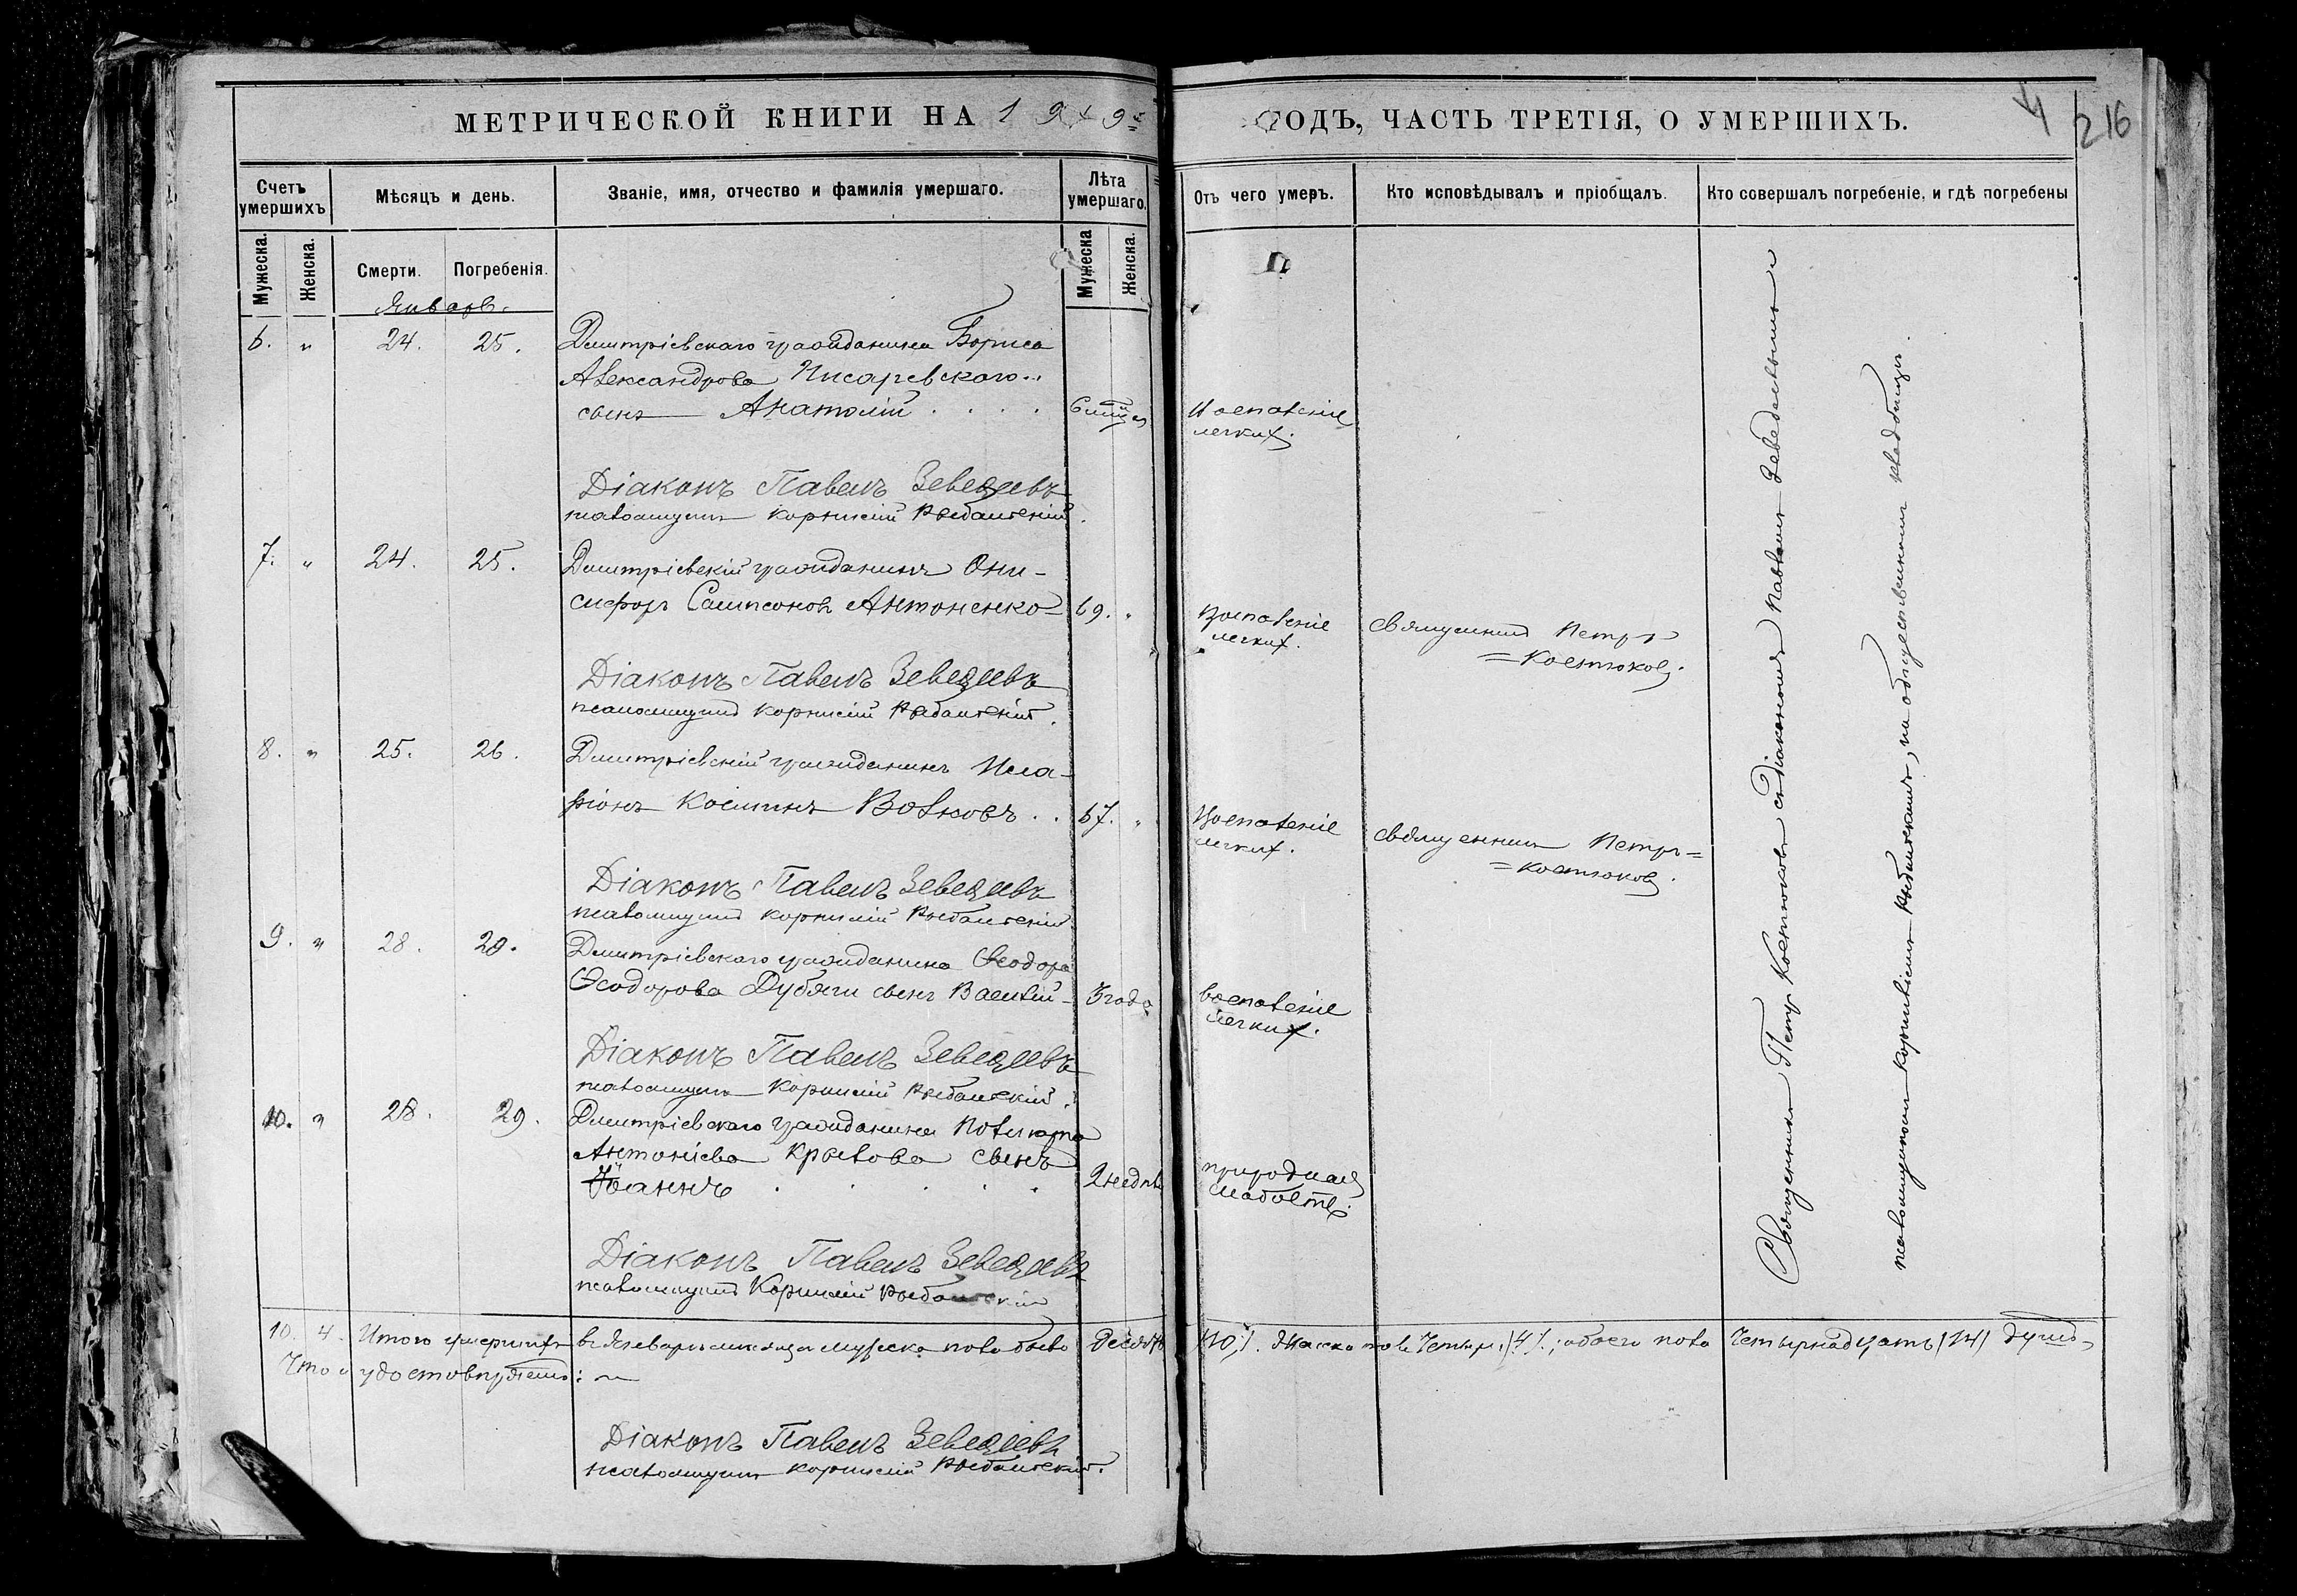 МЕТРИЧЕСКОЙ КНИГИ НА 19 9 ГОДЪ, ЧАСТЬ ТРЕТІЯ, О УМЕРШИХЪ.
216
Счетъ умершихъ
Мѣсяцъ и день.
Званіе, имя, отчество и фамилія умершаго.
Лѣта умершаго.
Отъ чего умеръ.
Кто исповѣдывалъ и пріобщалъ.
Кто совершалъ погребеніе, и гдѣ погребены
Мужеска.
Женска.
Смерти.
Погребенія.
Мужеска
Женска.
Январь.
6. " 24. 25. Дмитріевскаго гражданина Бориса
Александрова Писаревскаго
сынъ Анатолій
Воспаленіе
легкихъ.
Діаконъ Павелъ Зеведеевъ
псаломщикъ Корнилій
7. " 24. 25. Дмитріевскій гражданинъ Они-
сифоръ Сампсоновъ Антоненко 69. "
Воспаленіе
легкихъ.
Священникъ Петръ
= Костюковъ.
Діаконъ Павелъ Зеведеевъ
псаломщикъ Корнилій
8. " 25. 26. Дмитріевскій гражданинъ Ила-
ріонъ Косминъ Волковъ . . 67. "
Воспаленіе
легкихъ.
Священникъ Петръ =
= Костюковъ.
Діаконъ Павелъ Зеведеевъ
псаломщикъ Корнилій
9. " 28. 29. Дмитріевскаго гражданина Ѳеодора
Ѳеодорова Дубяги сынъ Василій - 3 года
воспаленіе
легкихъ.
Діаконъ Павелъ Зеведеевъ
псаломщикъ Корнилій
10. " 28. 29. Дмитріевскаго гражданина Поликарпа
Антоніева Крылова сынъ
Іоаннъ 2 недѣли
природная
слабость.
Діаконъ Павелъ Зеведеевъ
псаломщикъ Корнилій
Священникъ Петр Костюковъ съ діакономъ Павломъ Зеведеевымъ и
псаломщикомъ Корниліемъ на общественномъ кладбищѣ.
10. 4. Итого умершихъ въ Январѣ мѣсяцѣ мужеска пола было Десять (10), женска пола Четыре (4); обоего пола Четырнадцать (14) душъ,
Что и удостовѣряемъ:
Діаконъ Павелъ Зеведеевъ
псаломщикъ Корнилій